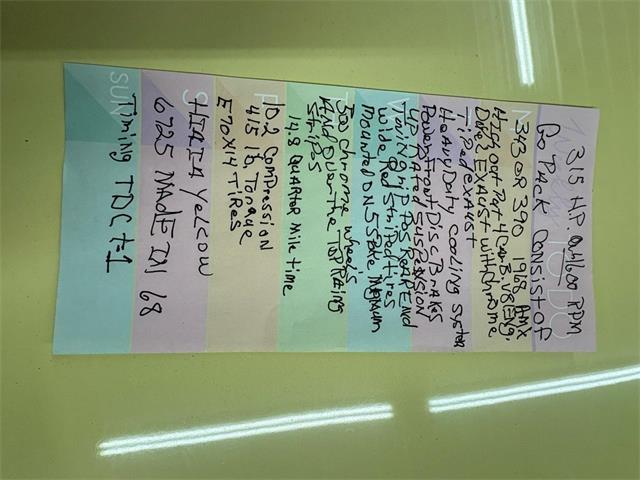 315 H.P. at 4600 RPM
Go PACK CONSIST OF
343 OR 390 1968 AMX
High out Put 4 CarB. V8 Eng,
Dual EXAUST with Chrome
Tiped exAust
Heavy Duty Cooling System
Power Front Disc Brakes
UP RATED SUSPENSION
Twin grip POS REAR END
Wide Red Striped tires
mounted ON 5 SPoke MAgnum
500 chrome wheels
AND Over the TOP RAing
Strips
14.8 QUARter Mile time
10.2 ComPression
415 lb Torque
E70X14 TiRes
HIALEA YelCOW
6725 MADE IN 68
Timing TDC t=1
SUN